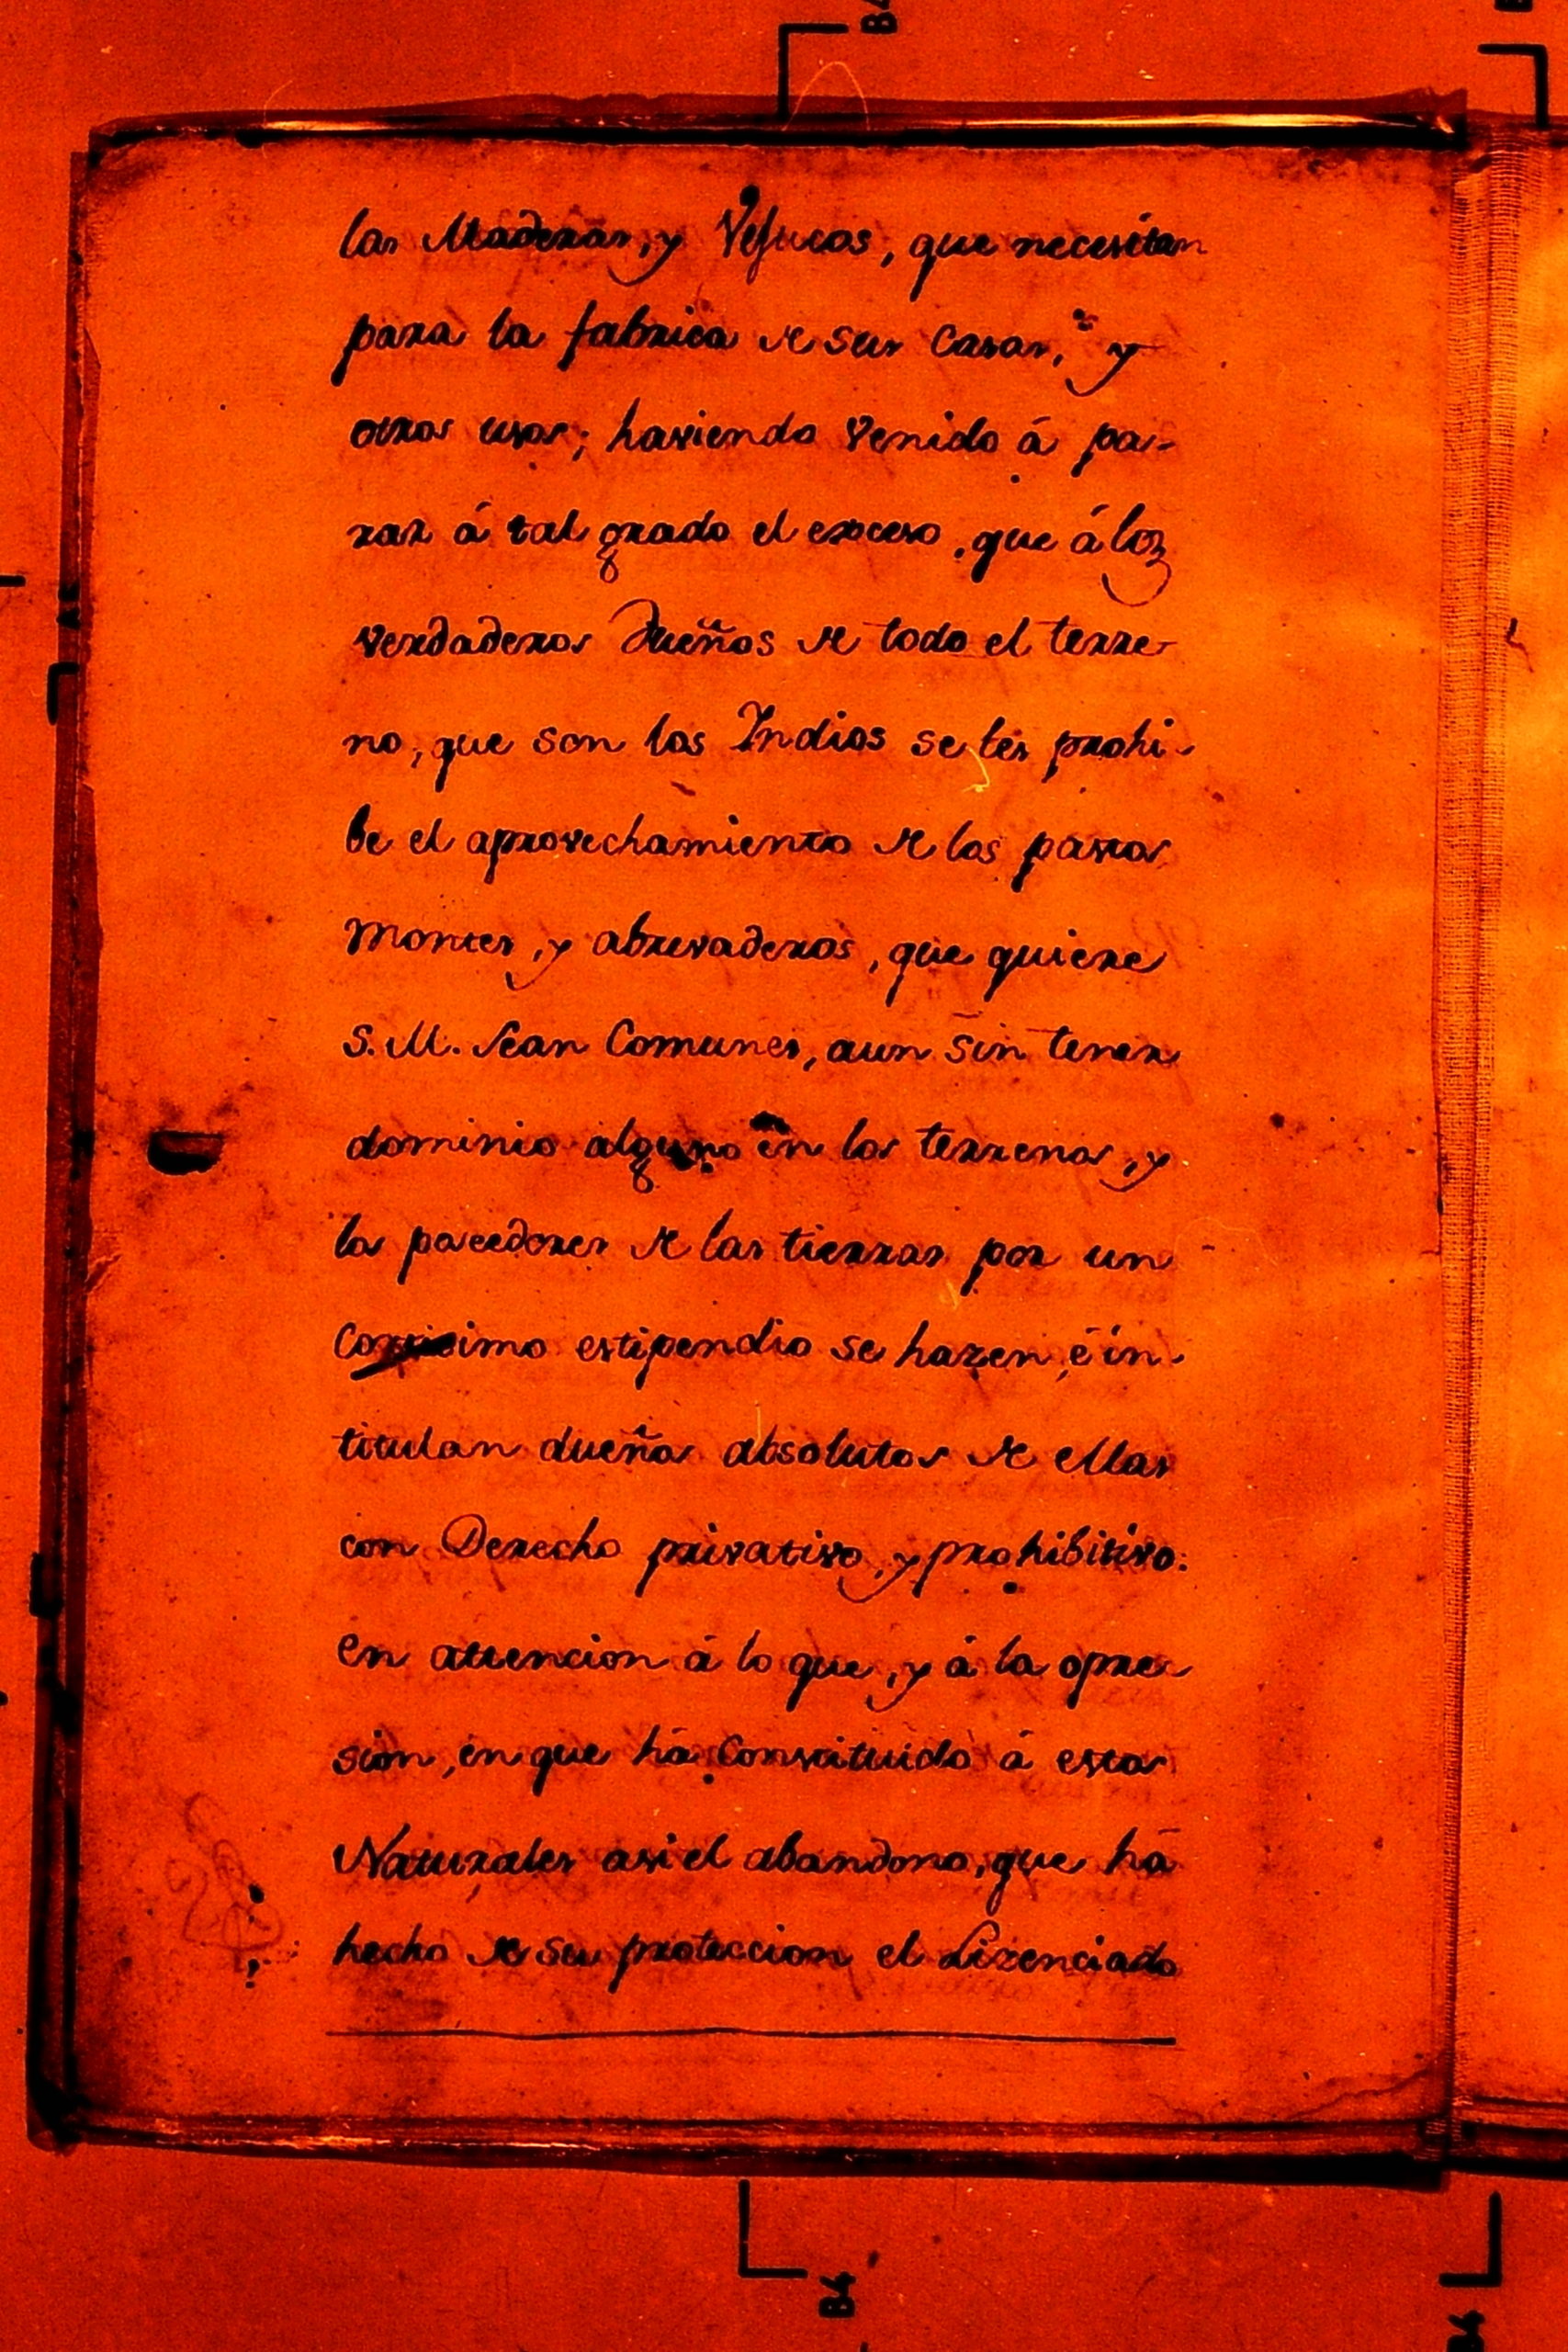 las Maderas, y Vejucos, que necesitan
para la fabrica de sus Casas, y
otros usos; haviendo Venido á pa-
rar á tal grado el exceso, que á los
verdaderos Dueños de todo el terre-
no, que son los Indios se les prohi-
be el aprovechamiento de los pastos
Montes, y abrevaderos, que quiere
S. M. Sean Comunes, aun sin tener
dominio alguno en los terrenos, y
los poceedores de las tierras por un
Cortisimo estipendio se hazen, é in-
titulan dueños absolutos de ellas
con Derecho privativo, y prohibitivo:
en attencion á lo que, y á la opre-
sion, en que há Constituido á estos
Naturales asi el abandono, que há
hecho de su proteccion el Lizenciado
B4
B4
B4